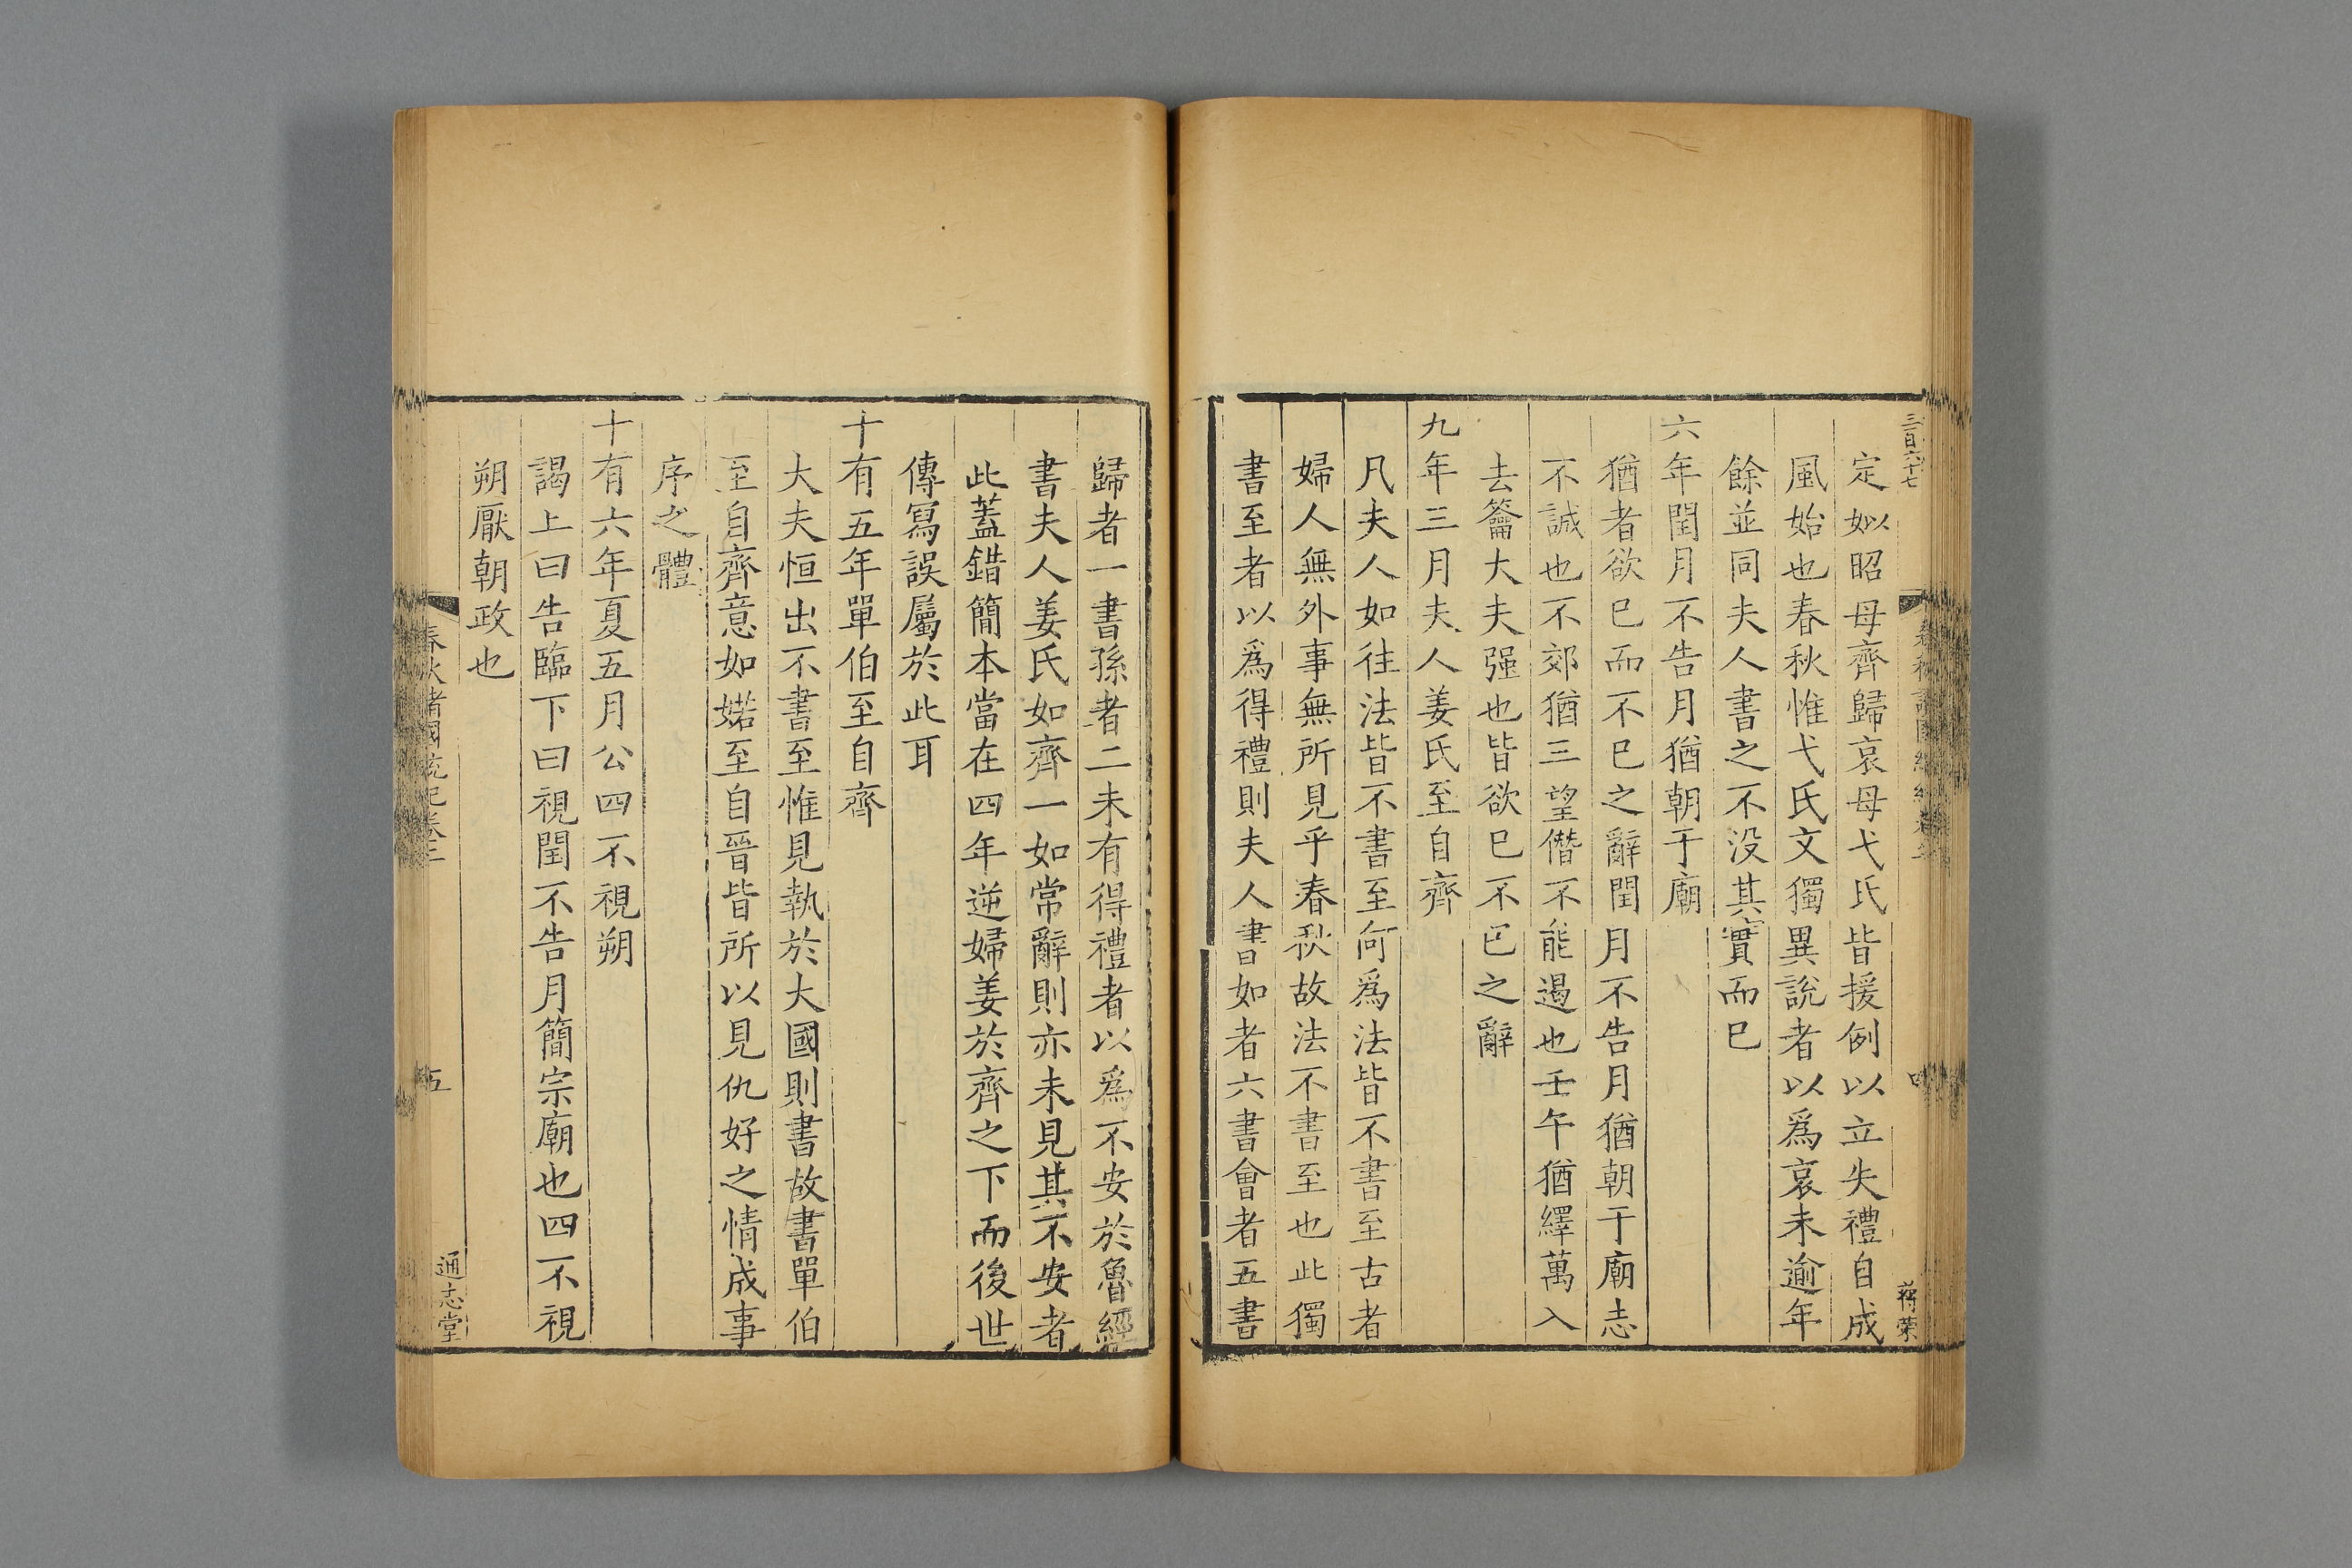 三百六十七
定姒昭母齊歸哀母弋氏皆援例以立失禮自成
風始也春秋惟弋氏文獨異說者以爲哀未逾年
餘並同夫人書之不没其實而巳
六年閏月不告月猶朝于廟
猶者欲巳而不巳之辭閏月不告月猶朝于廟志
不誠也不郊猶三望僭不能遏也壬午猶繹萬入
去籥大夫强也皆欲巳不巳之辭
九年三月夫人姜氏至自齊
凡夫人如往法皆不書至何爲法皆不書至古者
婦人無外事無所見乎春秋故法不書至也此獨
書至者以爲得禮則夫人書如者六書會者五書
蒋荣
歸者一書孫者二未有得禮者以爲不安於魯經
書夫人姜氏如齊一如常辭則亦未見其不安者
此蓋錯簡本當在四年逆婦姜於齊之下而後世
傳寫誤屬於此耳
十有五年單伯至自齊
大夫恒出不書至惟見執於大國則書故書單伯
至自齊意如婼至自晉皆所以見仇好之情成事
序之體
十有六年夏五月公四不視朔
謁上曰告臨下曰視閏不告月簡宗廟也四不視
朔厭朝政也
春秋諸國統紀卷三
五
通志堂